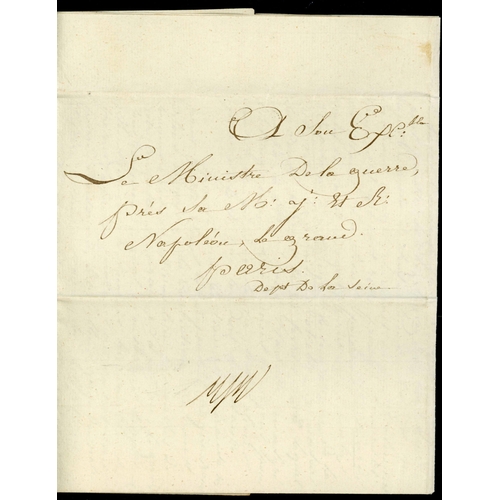 A Son Exc.lle
Le Ministre De la guerre,
près sa M. j. Et R.
Napoléon, Le grand.
paris.
Dept De La Seine